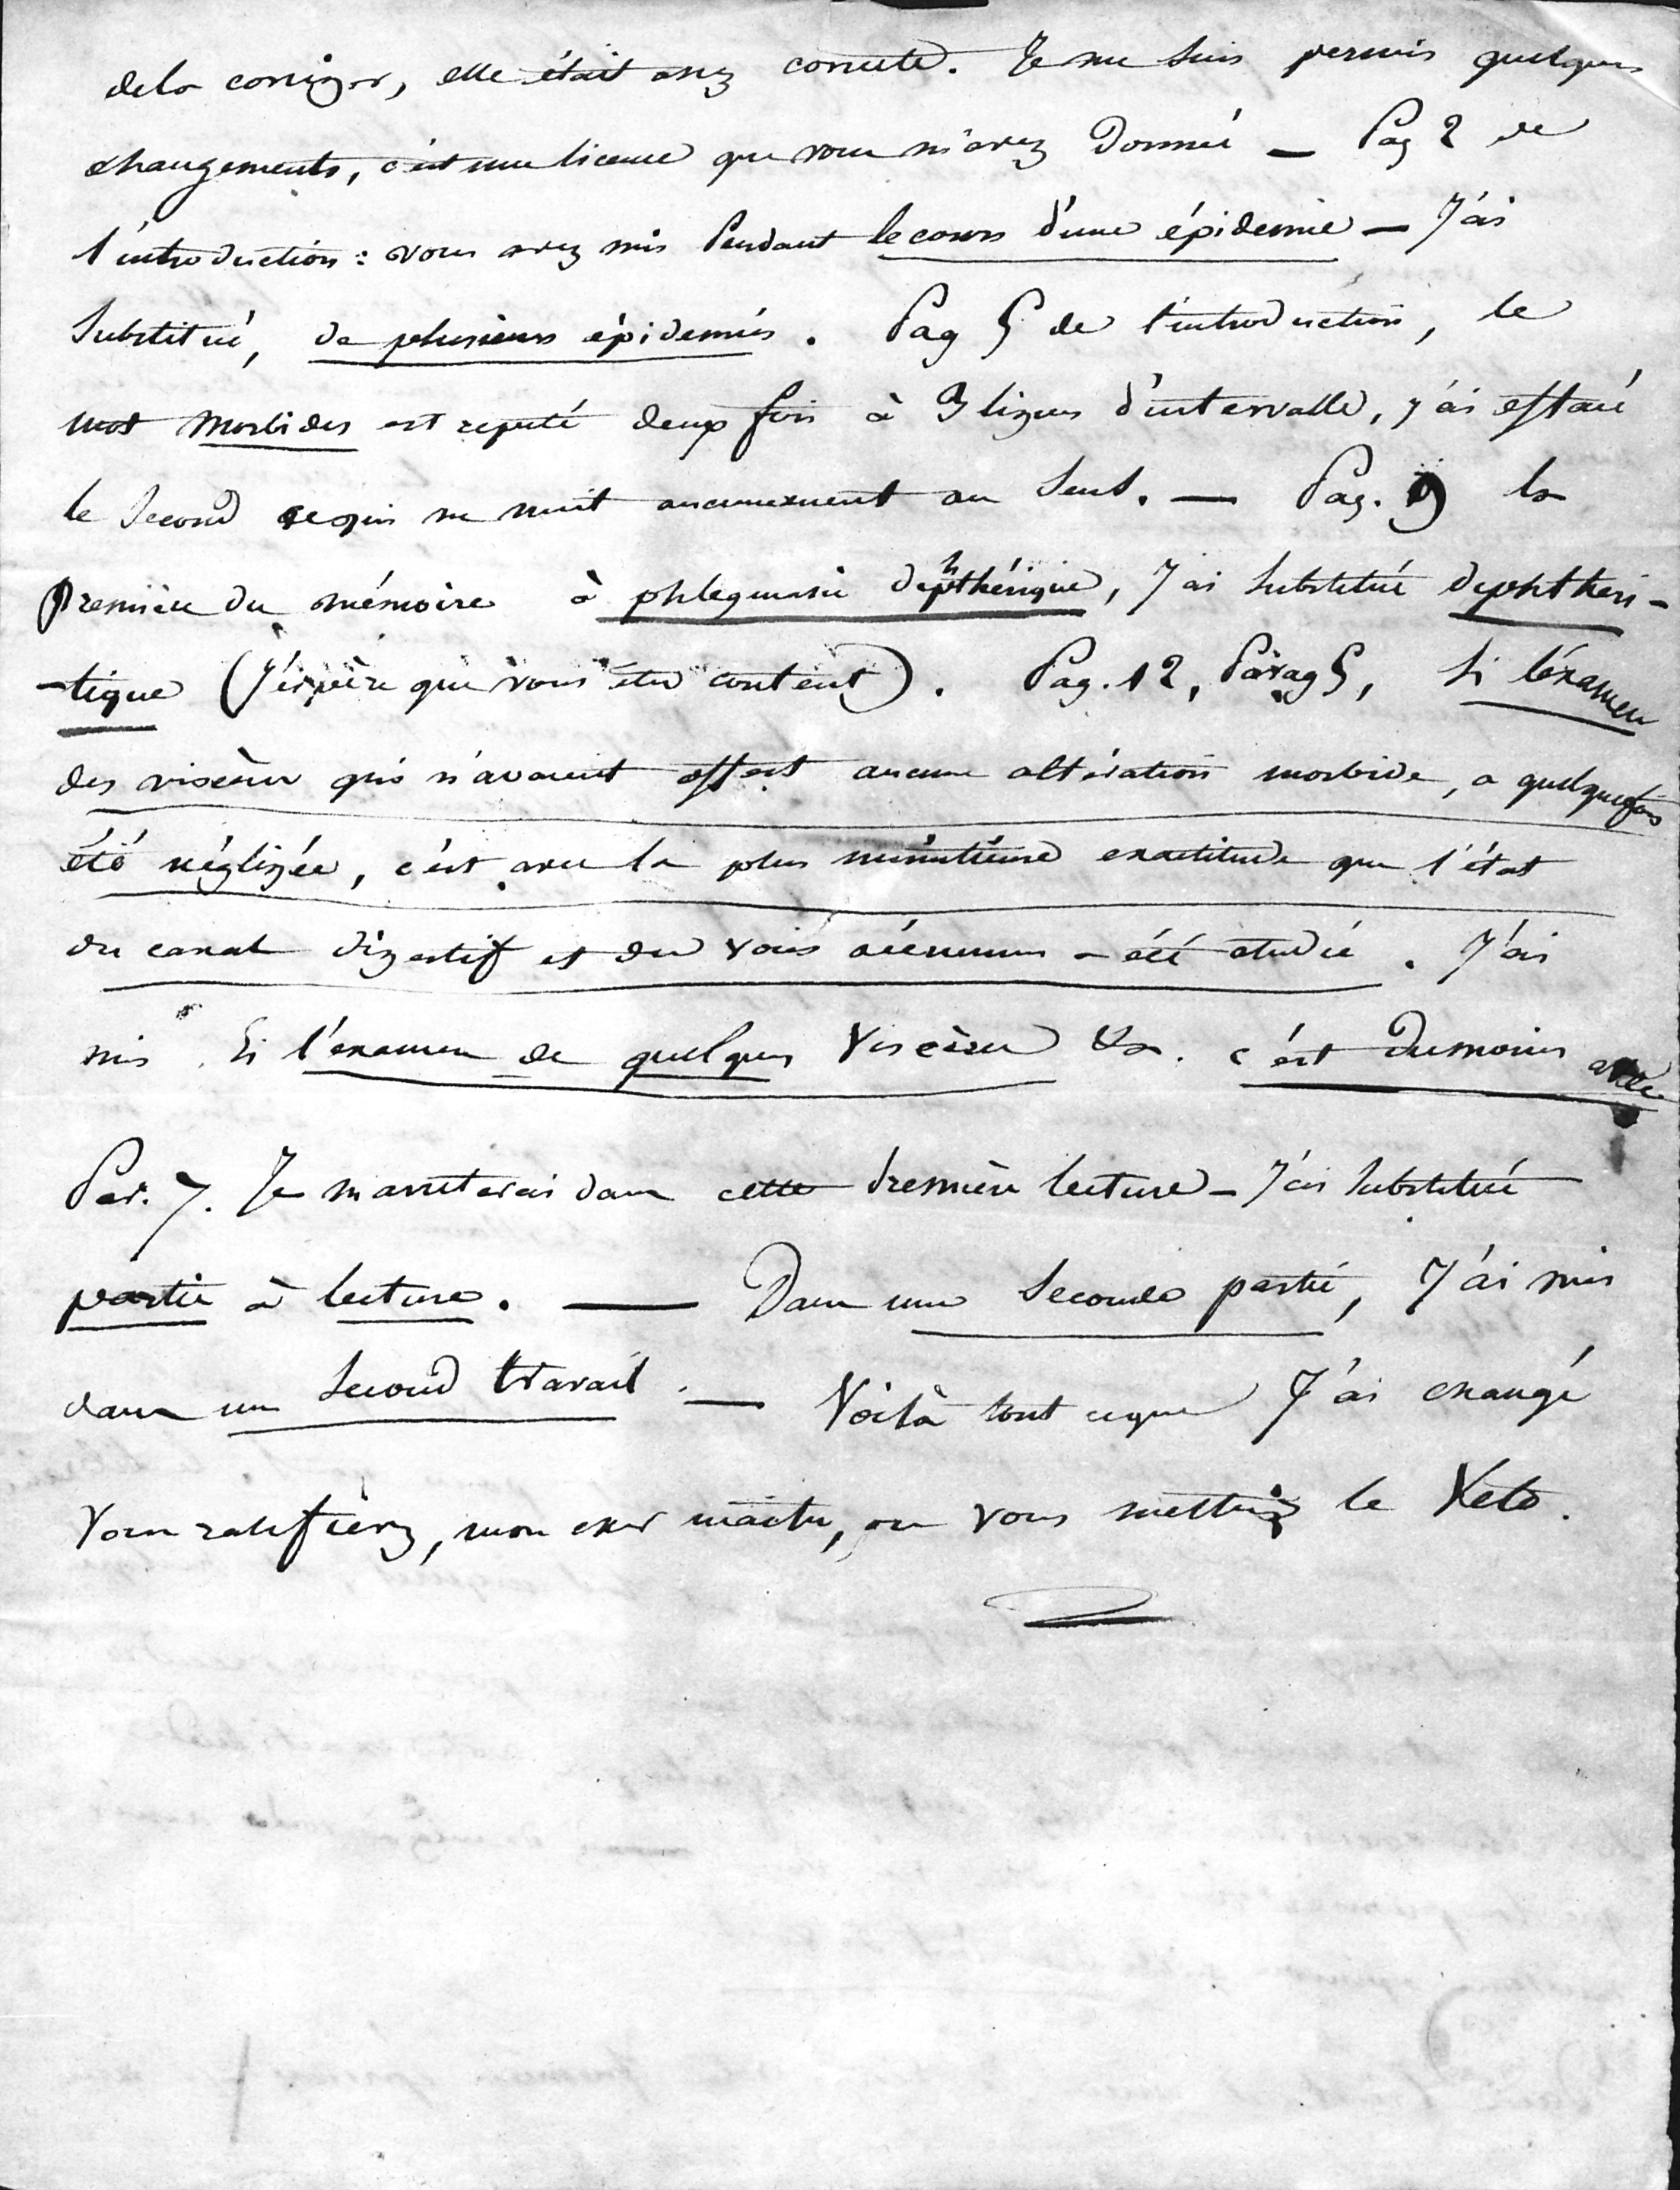 dela corriger, elle était assez correcte. Je me suis permis quelques
changements, c'est une licence que vous m'avez donnée — Pag 2 de
l'introduction : vous avez mis Pendant le cours d'une épidemie — J'ai
substitué, de plusieurs épidemies. Pag 5 de l'introduction, le
mot morbides est repeté deux fois à 3 lignes d'intervalle, j'ai effacé
le second ce qui ne nuit aucunement au sens. — Pag. 9 la
première du mémoire à phlegmasie diphthérique, J'ai substitué diphthéri-
-tique (J'éspère que vous êtes content). Pag. 12, Parag 5, Si l'éxamen
des viscères qui n'avaient offert aucune altération morbide, a quelquefois
été négligée, c'est avec la plus minutieuse exactitude que l'état
du canal digestif et des voies aériennes a été étudié. J'ai
mis Si l'examen de quelques viscères &a. c'est dumoins avec
Par. 7. Je m'arreterai dans cette première lecture — J'ai substitué
partie à lecture. — Dans une seconde partie, J'ai mis
dans un second travail. — Voilà tout ceque J'ai changé
Vous ratifierez, mon cher maitre, ou vous mettrez le Veto.